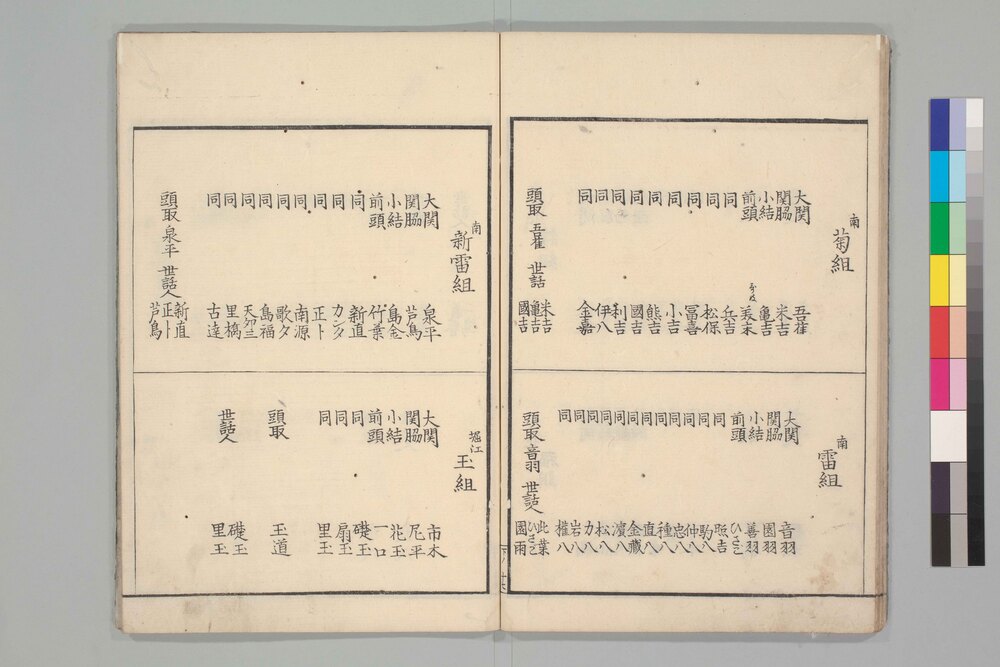 南 菊組
大関 吾雀
関脇 米吉
小結 亀吉
前頭 美末
同 兵吉
同 松保
同 冨喜
同 小吉
同 熊吉
同 國吉
同 利吉
同 伊八
同 金嘉
頭取 吾雀 世話 米吉 亀吉 國吉
南 雷組
大関 音羽
関脇 園羽
小結 善羽
前頭 ひさご
同 照吉
同 駒八
同 仲八
同 忠八
同 種八
同 直八
同 金蔵
同 濱八
同 松八
同 力八
同 岩八
同 権八
頭取 音羽 世話人 此葉 ひさご 國雨
南 新雷組
大関 泉平
関脇 芦鳥
小結 島金
前頭 竹葉
同 新直
同 カンタ
同 正ト
同 南源
同 歌夕
同 島福
同
同 里橋
同 古達
頭取 泉平 世話人 新直 正ト 芦鳥
堀江 玉組
大関 市木
関脇 尺平
小結 花玉
前頭 一口
同 礎玉
同 扇玉
同 里玉
頭取 玉道
世話人 礎玉 里玉